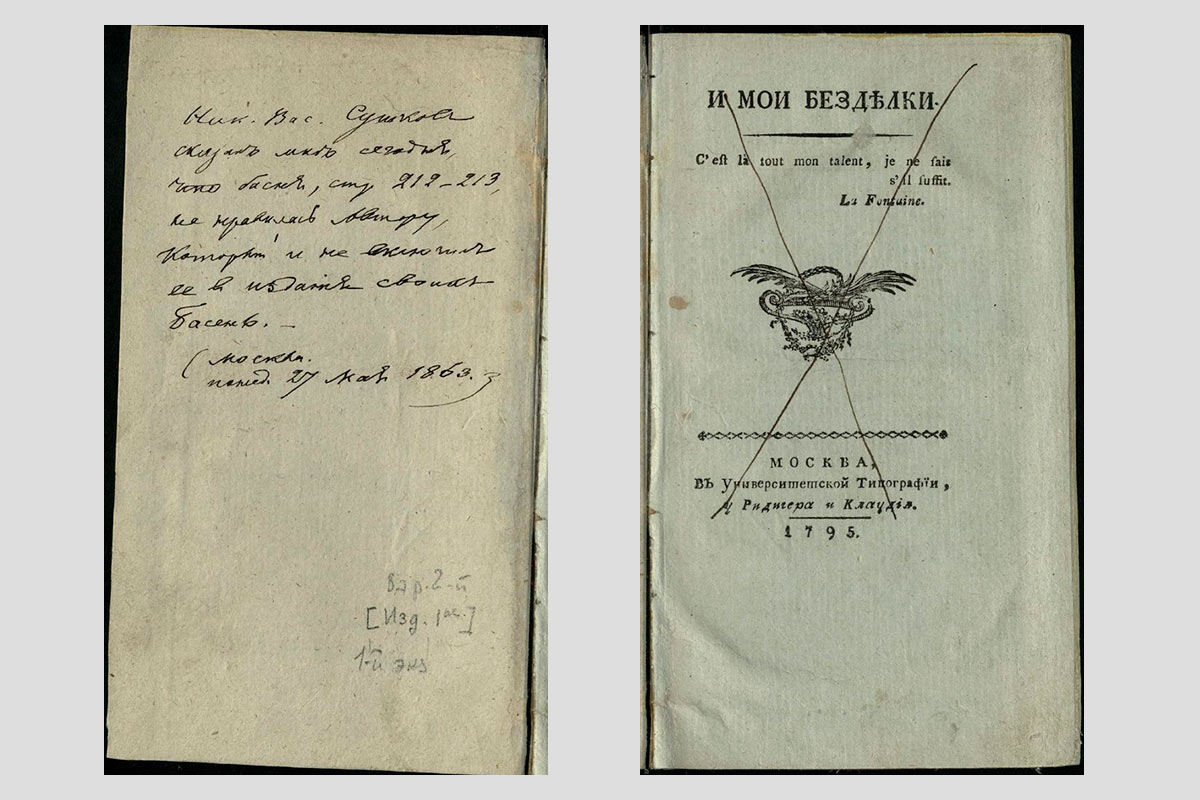 Ник. Вас. Сушковъ
сказалъ мнѣ сегодня,
что басня, стр. 212–213,
не нравилась Автору,
который и не включилъ
ее в издания своихъ
басенъ. –
(Москва.
понед. 27 Мая 1863.)
Вар. 2-й
[Изд. 1ое.]
1-й экз
И МОИ БЕЗДѢЛКИ.
C'est là tout mon talent, je ne sais
s'il suffit.
La Fontaine.
МОСКВА,
ВЪ Университетской Типографїи,
у Ридигера и Клаудія.
1795.